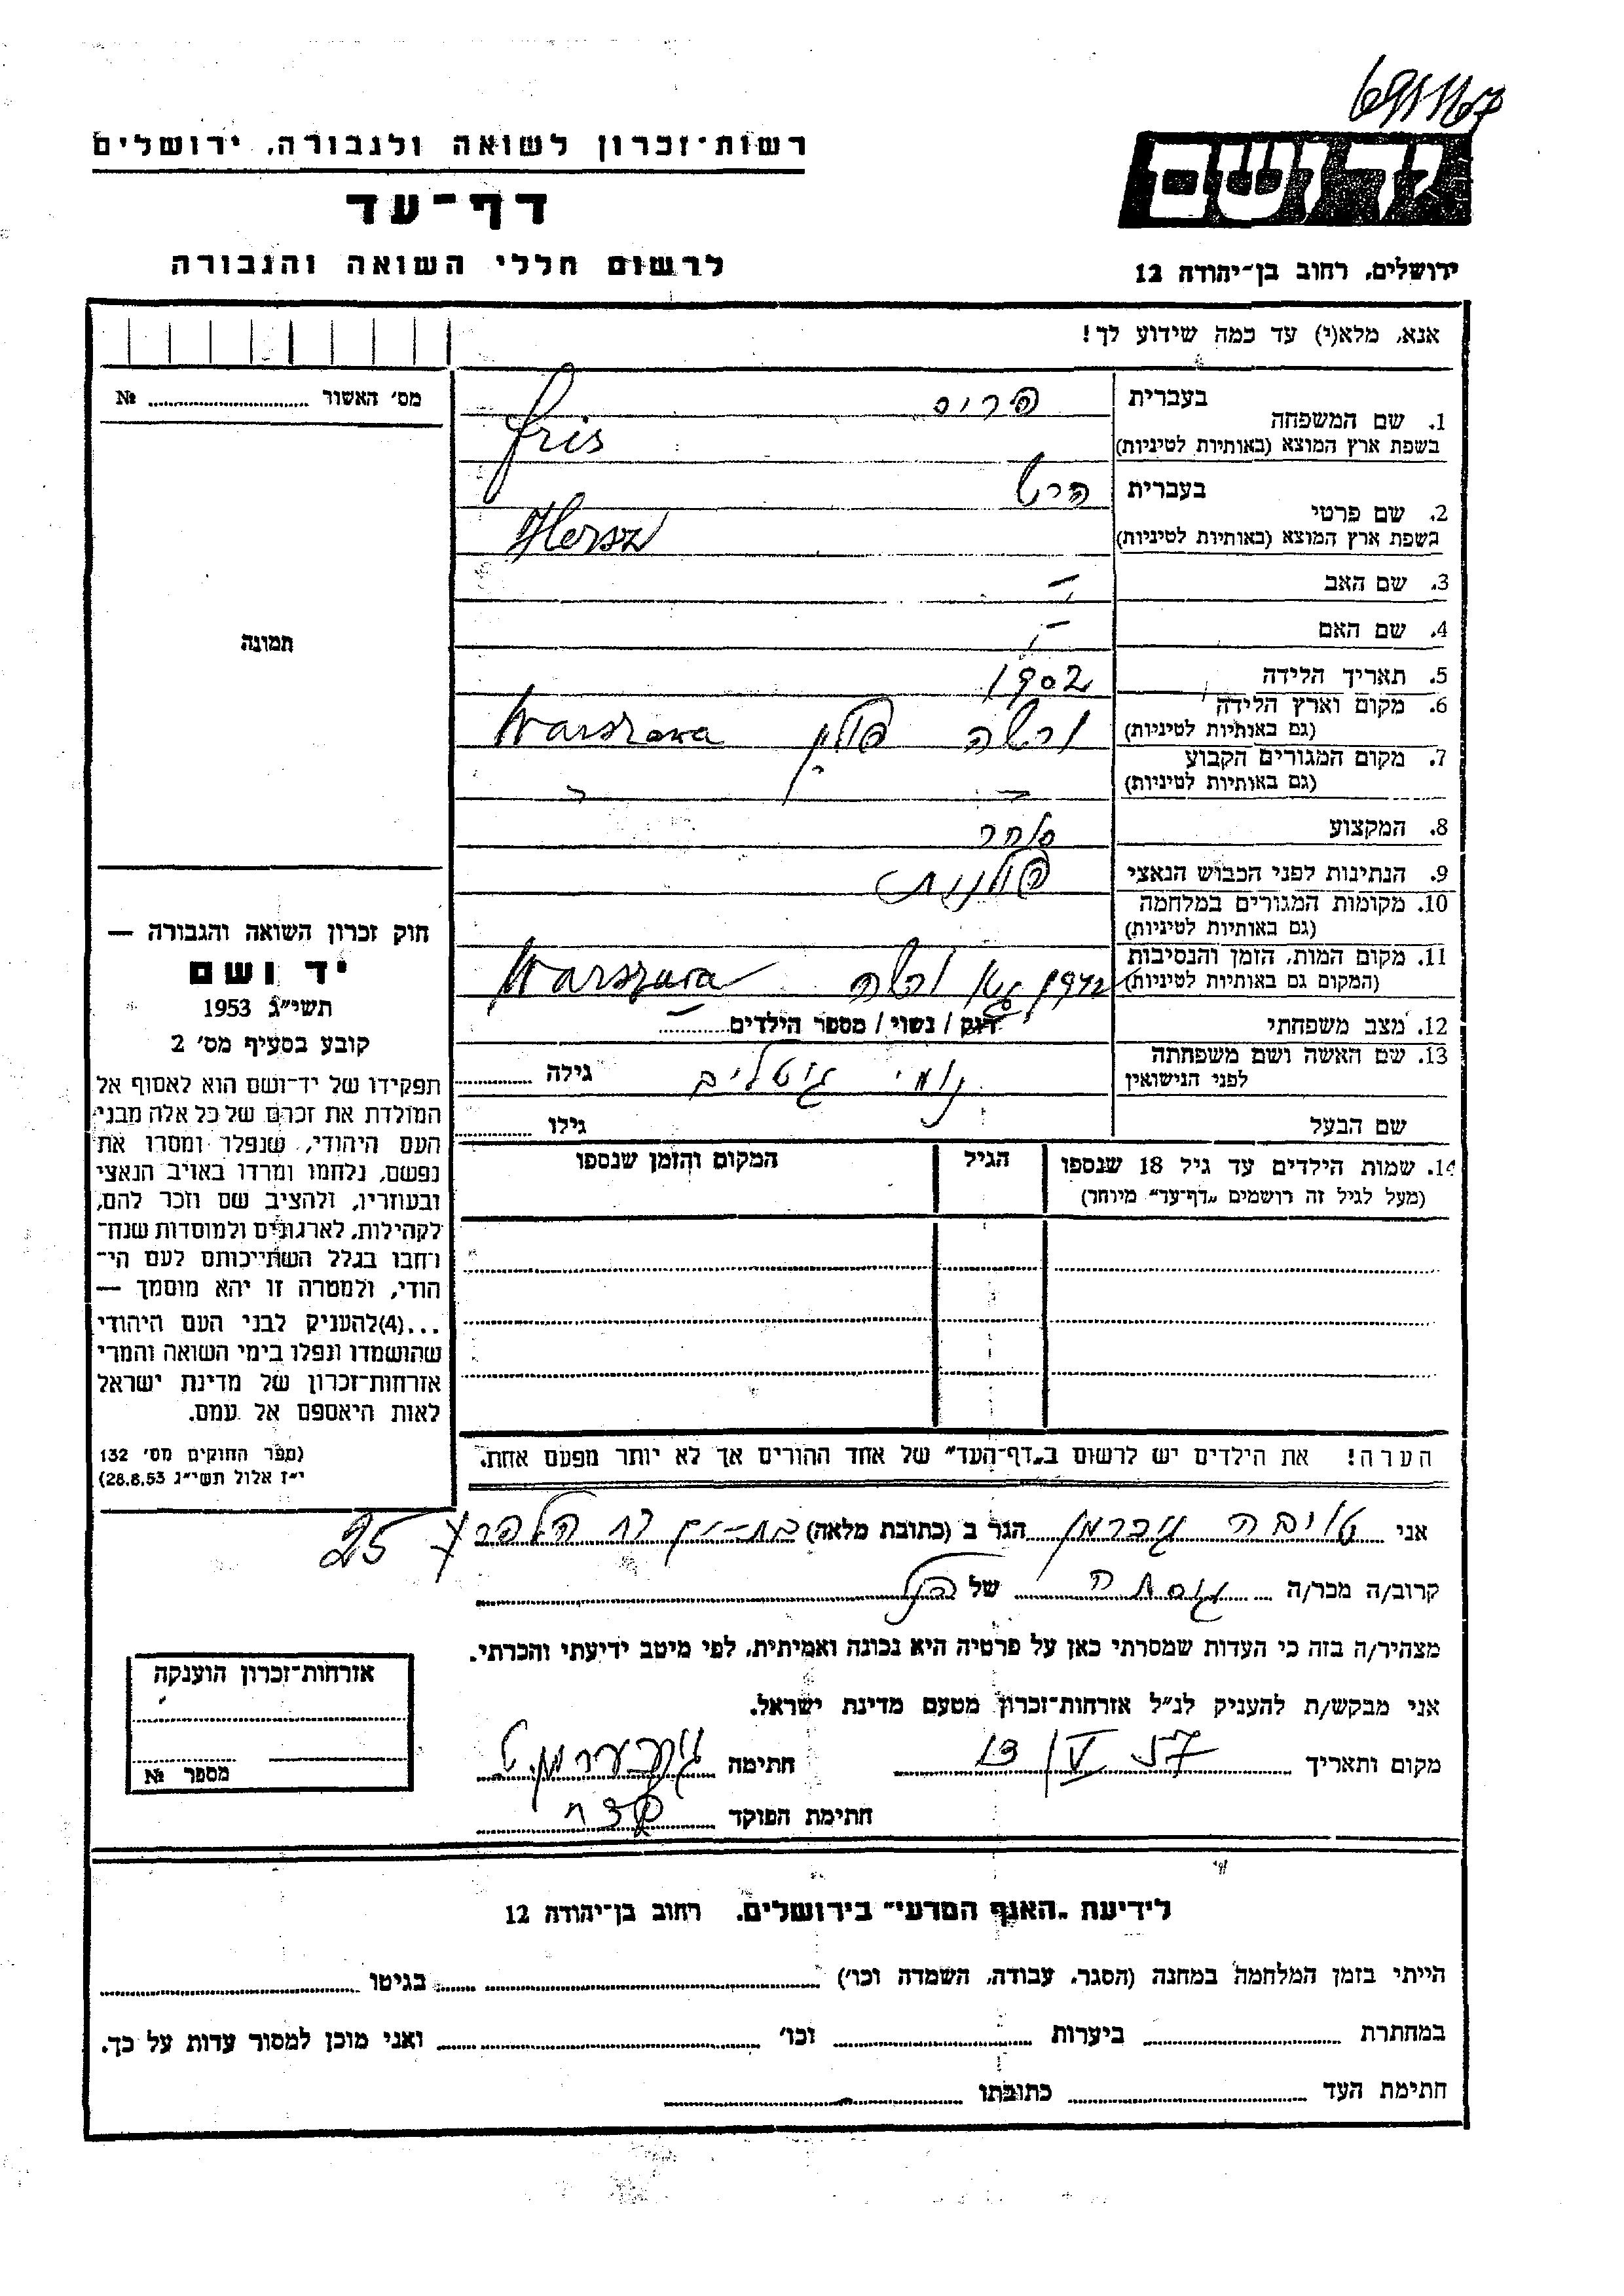 69/1167
רשות-זכרון לשואה ולגבורה, ירושלים
יד ושם
דף-עד
לרשום חללי השואה והגבורה
ירושלים, רחוב בן-יהודה 12
אנא, מלא(י) עד כמה שידוע לך!
מס' האשור № 
1. שם המשפחה בעברית פריס
בשפת ארץ המוצא (באותיות לטיניות) Fris
2. שם פרטי בעברית הרש
בשפת ארץ המוצא (באותיות לטיניות) Hersz
3. שם האב —
4. שם האם —
תמונה
5. תאריך הלידה 1902
6. מקום וארץ הלידה (גם באותיות לטיניות) ורשה פולין Warszawa
7. מקום המגורים הקבוע (גם באותיות לטיניות)
8. המקצוע סוחר
9. הנתינות לפני הכבוש הנאצי פולנית
10. מקומות המגורים במלחמה (גם באותיות לטיניות)
11. מקום המות, הזמן והנסיבות (המקום גם באותיות לטיניות) 1942 גטו ורשה Warszawa
12. מצב משפחתי רווק / נשוי / מספר הילדים —
13. שם האשה ושם משפחתה לפני הנישואין נומי גוטליב גילה
שם הבעל גילו
14. שמות הילדים עד גיל 18 שנספו הגיל המקום והזמן שנספו
(מעל לגיל זה רושמים "דף-עד" מיוחד)
חוק זכרון השואה והגבורה —
יד ושם
תשי"ג 1953
קובע בסעיף מס' 2
תפקידו של יד-ושם הוא לאסוף אל
המולדת את זכרם של כל אלה מבני
העם היהודי, שנפלו ומסרו את
נפשם, נלחמו ומרדו באויב הנאצי
ובעוזריו, ולהציב שם וזכר להם,
לקהילות, לארגונים ולמוסדות שנח-
רחבו בגלל השתייכותם לעם הי-
הודי, ולמטרה זו יהא מוסמך —
...(4)להעניק לבני העם היהודי
שהושמדו ונפלו בימי השואה והמרי
אזרחות-זכרון של מדינת ישראל
לאות היאספם אל עמם.
(ספר החוקים מס' 132
י"ז אלול תשי"ג 28.8.53)
הערה! את הילדים יש לרשום ב"דף-העד" של אחד ההורים אך לא יותר מפעם אחת.
אני טויבה גוברמן הגר ב (כתובת מלאה) בת-ים רח הלפרין 25
קרוב/ה מכר/ה גיסתה של הנ"ל
מצהיר/ה בזה כי העדות שמסרתי כאן על פרטיה היא נכונה ואמיתית, לפי מיטב ידיעתי והכרתי.
אני מבקש/ת להעניק לנ"ל אזרחות-זכרון מטעם מדינת ישראל.
מקום ותאריך 13/V 57 חתימה
חתימת הפוקד
אזרחות-זכרון הוענקה
מספר №
לידיעת "האגף המדעי" בירושלים, רחוב בן-יהודה 12
הייתי בזמן המלחמה במחנה (הסגר, עבודה, השמדה וכו') בגיטו
במחתרת ביערות וכו' ואני מוכן למסור עדות על כך.
חתימת העד כתובתו